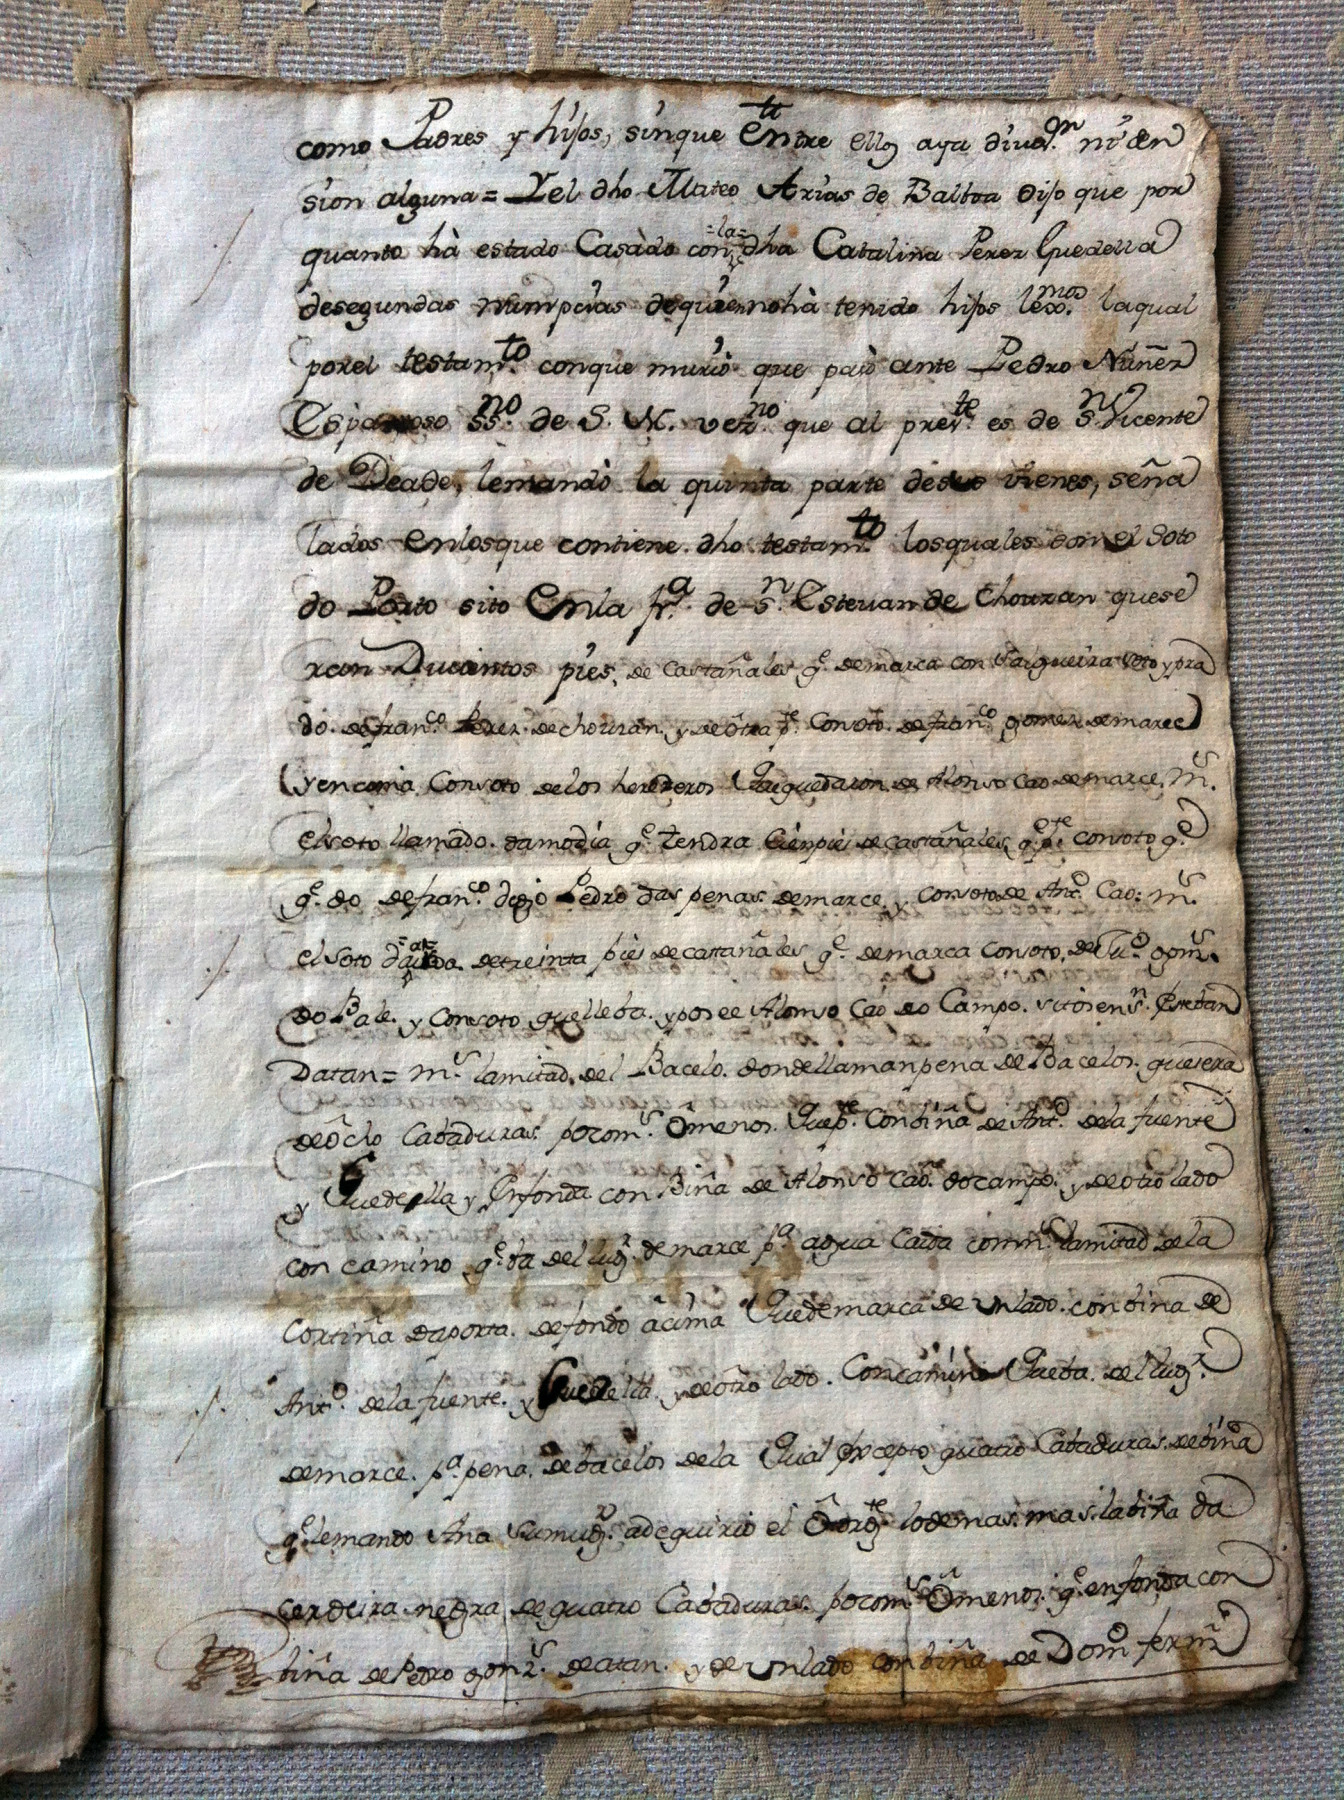 como Padres y hijos, sinque Entre ellos aya divon. ni den
sion alguna = Y el dho Mateo Arias de Balboa dijo que por
quanto hà estado Casado con =la= dha Catalina Perez Guedella
desegundas numpcias dequien nohà tenido hijos lexmos. laqual
porel testamto. conque murio que pasò ante Pedro Nuñez
Espanoso ssno. de S. M. vezno. que al preste. es de sn. Vicente
de Deade, lemandò la quinta parte desus vienes, seña
lados enlosque contiene. dho. testamto. losquales son el Soto
do Porto sito Enla fra. de sn. Estevan de Chouzan quese
ran Ducientos pies, de castañales qe. demarca con Salgueira soto y pra
do. de franco. Perez. de chouzan. y de ôtra pe. Consoto. de franco. gomez. demarce
y encima. Consoto delos herederos Quequedaron. de Alonso Cao demarce. ms.
elsoto llamado. damodia qe. tendra Cienpies de castañales, qe. pte. consoto qe.
qe. do de franco. dejo Pedro das penas. demarce. y consoto de Anto. Cao: ms.
el Soto =a= de treinta pies de castañales qe. demarca consoto. de Juo.
do Bale. y Consoto quelleba. y posee Alonso Cao do Campo. sitos en sn. Esteban
Datan = ms. lamitad. del Bacelo. dondellaman pena de Bacelos. quesera
de ôcho Cabaduras. pocoms. ômenos. Quepte. Conbiña de Anto. dela fuente
y Guedella y Enfonda con Biña de Alonso Cao. docampo. y de otro lado
con camino qe. ba del lugr. demarce pa. agua Caida comms. lamitad dela
Cortiña daporta. defondo acima Quedemarca de vnlado. conbina de
Anto. dela fuente. y Guedella. y deôtro lado. Concamino Queba. del lugr.
demarce. pa. pena. debacelos dela Qual Excepto quatro Cabaduras. debiña
qe. lemando Ana Sumugr. adequirio el Ôtorgte. lodemas. mas. labiña da
cerdeira negra de quatro Cabaduras. pocoms. Ômenos. qe. enfonda con
biña de Pedro gonzs. deatan. y de vnlado conbiña de Domo.